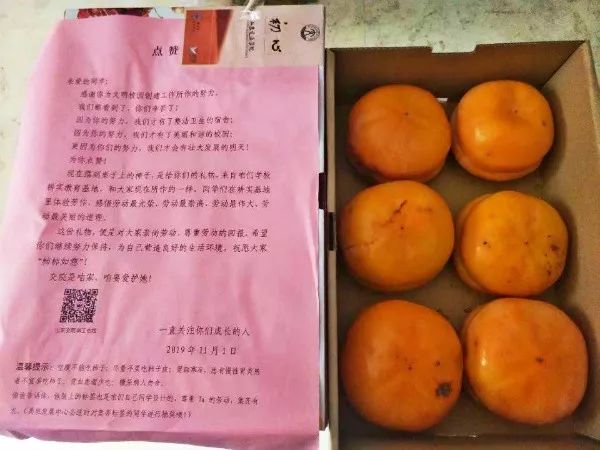 初心
点赞
亲爱的同学:
感谢你为文明校园创建工作所作的努力,
我们都看到了,你们辛苦了!
因为你的努力,我们才有了整洁卫生的宿舍;
因为你的努力,我们才有了美丽和谐的校园;
更因为你们的努力,我们才会有壮大发展的明天!
为你点赞!
现在摆到桌子上的柿子,是给你们的礼物,来自咱们学校
桥实教育基地,和大家现在所作的一样,同学们在桥实基地
里体验劳作,感悟劳动最光荣、劳动最崇高、劳动最伟大、劳
动最美丽的道理。
这份礼物,便是对大家崇尚劳动、尊重劳动的回报,希望
你们继续努力保持,为自己营造良好的生活环境,祝愿大家
“柿柿如意”!
交院是咱家,咱要爱护她!
一直关注你们成长的人
2019年11月1日
温馨提示:空腹不能吃柿子;尽量不要吃柿子皮;